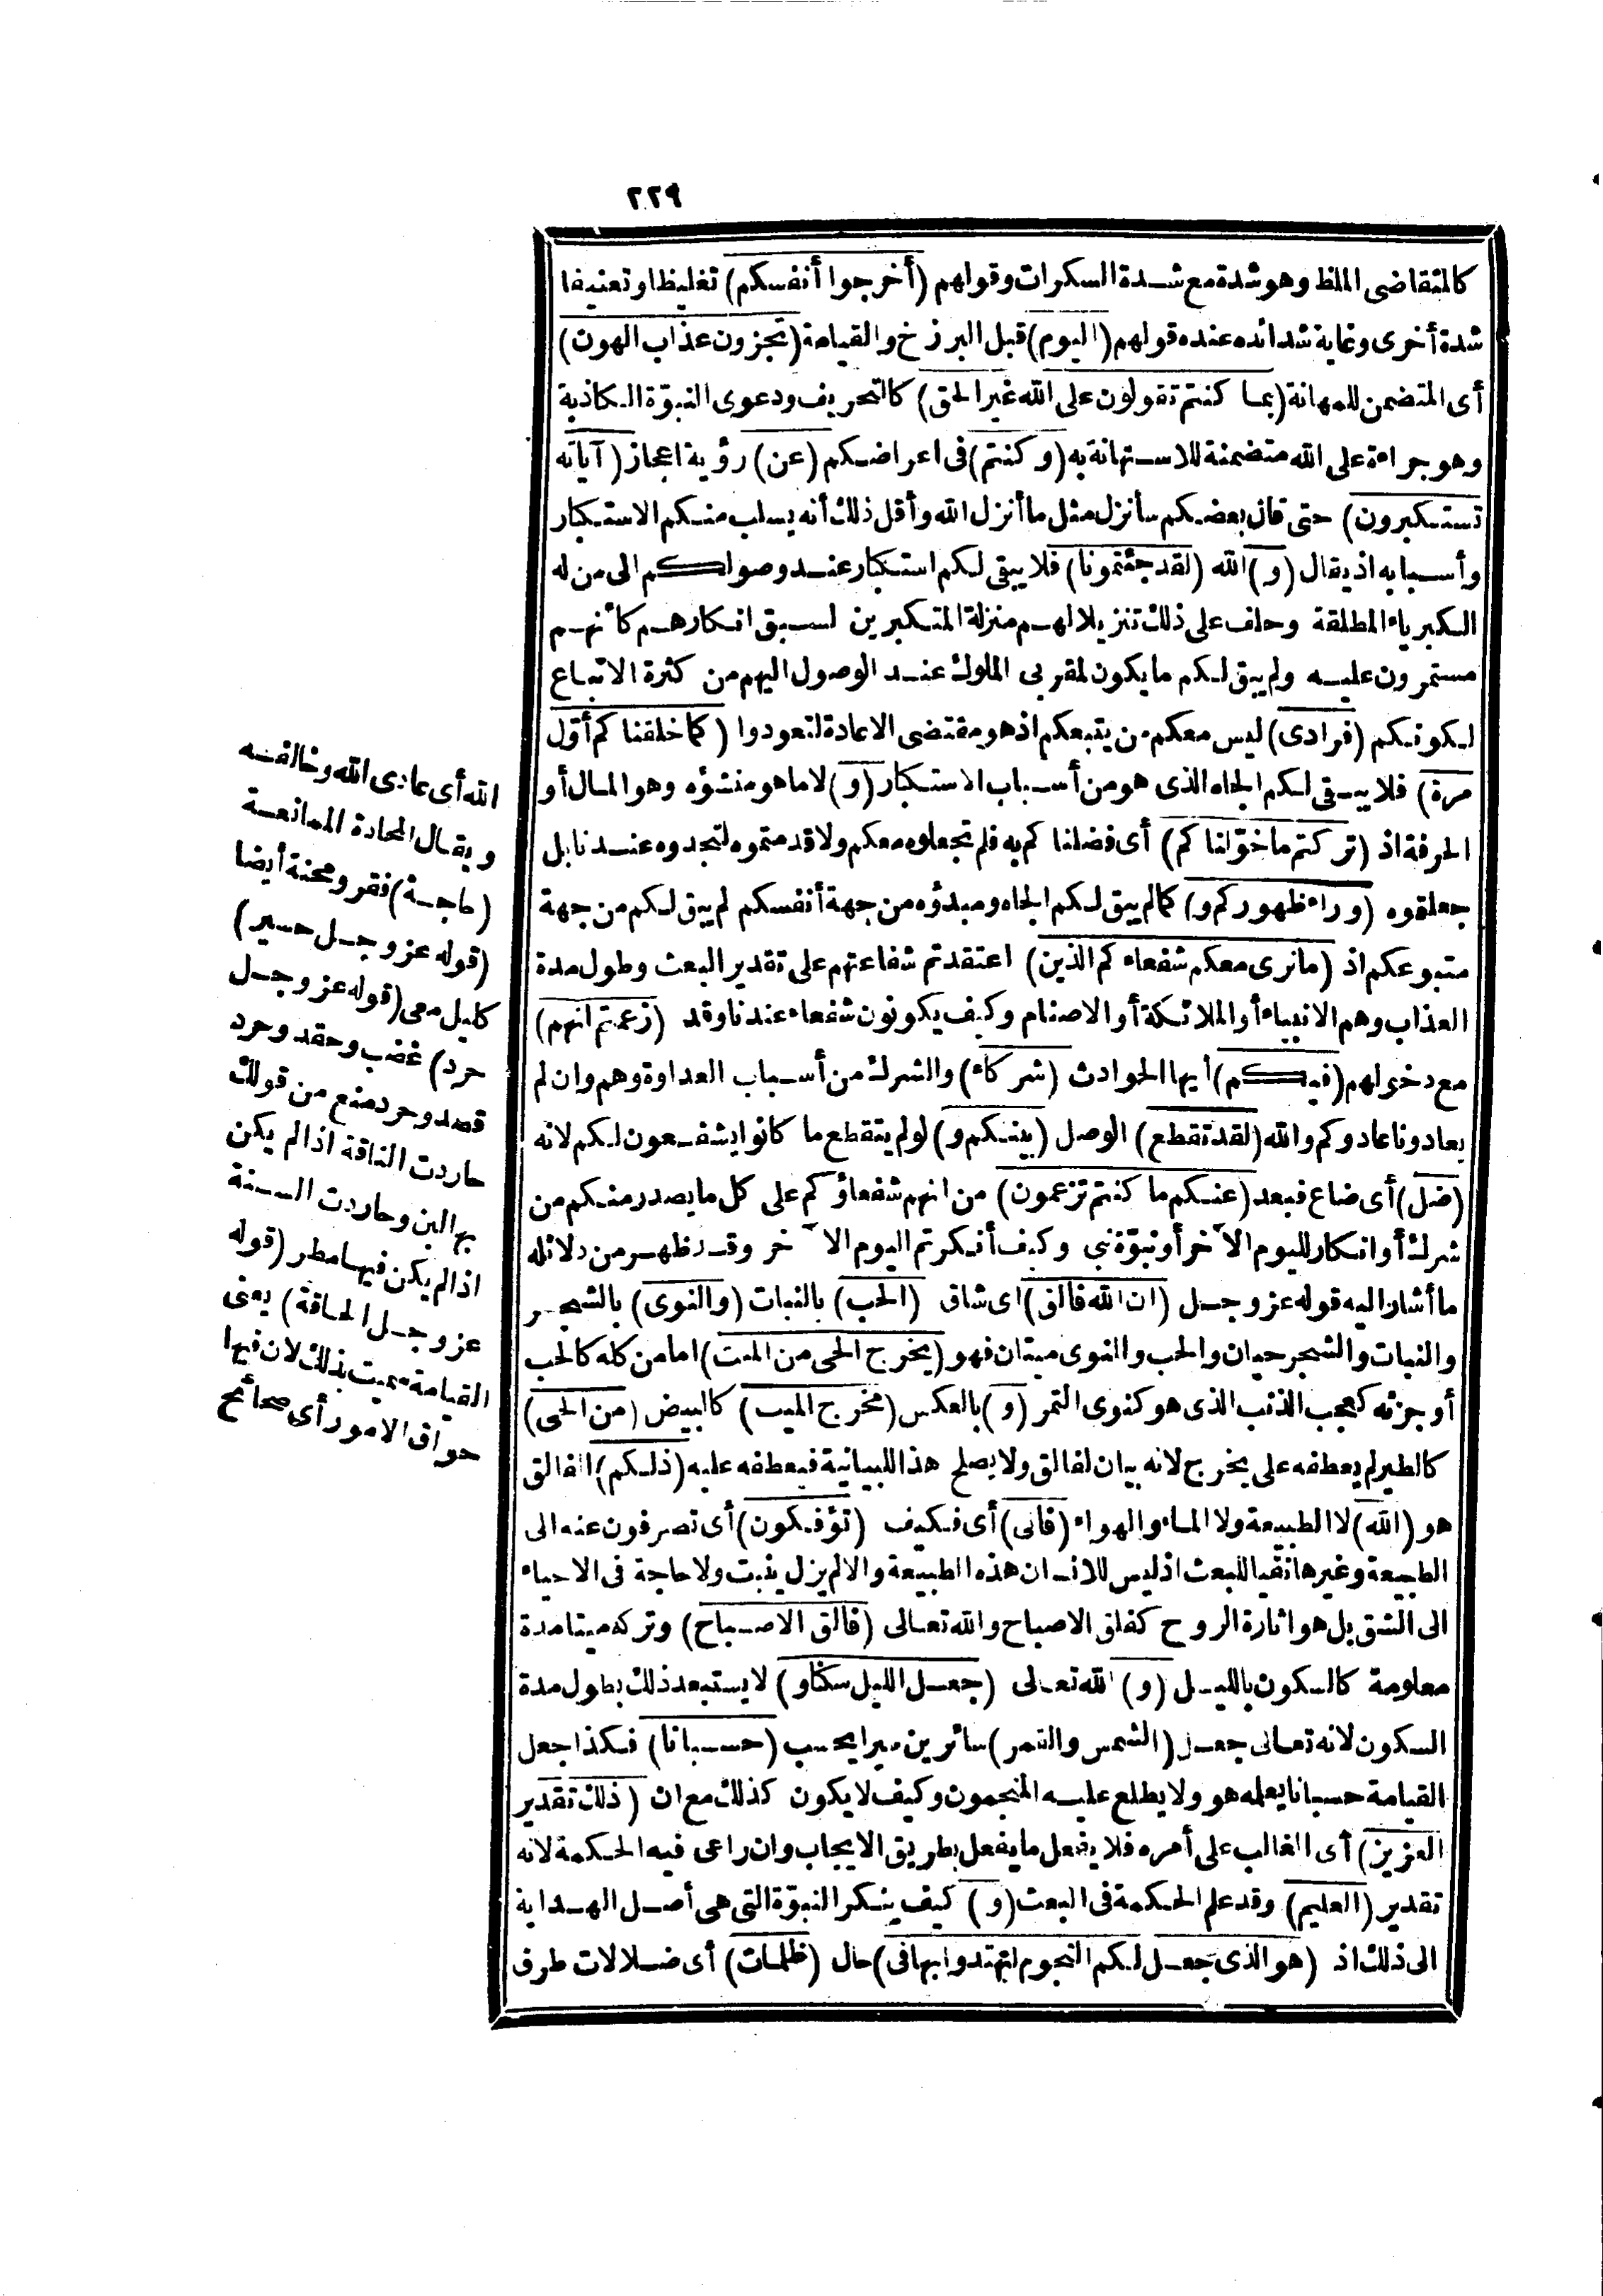 ٢٢٩
كالمتقاضى الملظ وهو شدة مع شدة السكرات وقولهم (أخرجوا أنفسكم) تغليظا وتعنيفا
شدة أخرى وغاية شدائده عنده قولهم (اليوم) قبل البرزخ والقيامة (تجزون عذاب الهون)
أى المتضمن للمهانة (بما كنتم تقولون على الله غير الحق) كالتحريف ودعوى النبوّة الكاذبة
وهو جراءة على الله متضمنة للاستهانة به (وكنتم) فى اعراضكم (عن) رؤية اعجاز (آياته
تستكبرون) حتى قال بعضكم سأنزل مثل ما أنزل الله وأقل ذلك أنه يسلب منكم الاستكبار
وأسبابه اذ يقال (و) الله (لقد جئتمونا) فلا يبقى لكم استكبار عند وصولكم الى من له
الكبرياء المطلقة وحلف على ذلك تنزيلا لهم منزلة المتكبرين لسبق انكارهم كأنهم
مستمرون عليه ولم يبق لكم ما يكون لمقربى الملوك عند الوصول اليهم من كثرة الاتباع
لكونكم (فرادى) ليس معكم من يتبعكم اذ هو مقتضى الاعادة لتعودوا (كما خلقناكم أوّل
مرة) فلا يبقى لكم الجاه الذى هو من أسباب الاستكبار (و) لا ما هو منشؤه وهو المال أو
الحرفة اذ (تركتم ما خوّلناكم) أى فضلناكم به فلم تجعلوه معكم ولا قدمتموه لتجدوه عندنا بل
جعلتموه (وراء ظهوركم و) كما لم يبق لكم الجاه ومبدؤه من جهة أنفسكم لم يبق لكم من جهة
متبوعكم اذ (ما نرى معكم شفعاءكم الذين) اعتقدتم شفاعتهم على تقدير البعث وطول مدة
العذاب وهم الانبياء أو الملائكة أو الاصنام وكيف يكونون شفعاء عندنا وقد (زعمتم انهم)
مع دخولهم (فيكم) أيها الحوادث (شركاء) والشرك من أسباب العداوة وهم وان لم
يعادونا عادوكم والله (لقد تقطع) الوصل (بينكم و) لو لم يتقطع ما كانوا يشفعون لكم لانه
(ضل) أى ضاع فبعد (عنكم ما كنتم تزعمون) من انهم شفعاؤكم على كل ما يصدر منكم من
شرك أو انكار لليوم الآخر أو نبوّة نبى وكيف أنكرتم اليوم الآخر وقد ظهر من دلائله
ما أشار اليه قوله عز وجل (ان الله فالق) اى شاق (الحب) بالنبات (والنوى) بالشجر
والنبات والشجر حيان والحب والنوى ميتان فهو (يخرج الحى من الميت) اما من كله كالحب
أو جزئه كعجب الذنب الذى هو كنوى التمر (و) بالعكس (مخرج الميت) كالبيض (من الحى)
كالطير لم يعطفه على يخرج لانه بيان لفالق ولا يصلح هذا للبيانية فيعطفه عليه (ذلكم) الفالق
هو (الله) لا الطبيعة ولا الماء والهواء (فانى) أى فكيف (تؤفكون) أى تصرفون عنه الى
الطبيعة وغيرها نفيا للبعث اذ ليس للانسان هذه الطبيعة والا لم يزل ينبت ولا حاجة فى الاحياء
الى الشق بل هو اثارة الروح كفلق الاصباح والله تعالى (فالق الاصباح) وتركه ميتا مدة
معلومة كالسكون بالليل (و) الله تعالى (جعل الليل سكنا و) لا يستبعد ذلك بطول مدة
السكون لانه تعالى جعل (الشمس والقمر) سائرين سيرا يحسب (حسبانا) فكذا جعل
القيامة حسبانا يعلمه هو ولا يطلع عليه المنجمون وكيف لا يكون كذلك مع ان (ذلك تقدير
العزيز) أى الغالب على أمره فلا يفعل ما يفعل بطريق الايجاب وان راعى فيه الحكمة لانه
تقدير (العليم) وقد علم الحكمة فى البعث (و) كيف ينكر النبوّة التى هى أصل الهداية
الى ذلك اذ (هو الذى جعل لكم النجوم لتهتدوا بها فى) حال (ظلمات) أى ضلالات طرف
الله أى عادى الله وخالفه
ويقال المحادة الممانعة
(حاجة) فقر ومحنة أيضا
(قوله عز وجل حسير)
كليل معى (قوله عز وجل
حرد) غضب وحقد وحرد
قصد وحرد منع من قولك
حاردت الناقة اذا لم يكن
بها لبن وحاردت السنة
اذا لم يكن فيها مطر (قوله
عز وجل الحاقة) يعنى
القيامة سميت بذلك لان فيها
حواق الامور أى صحائح